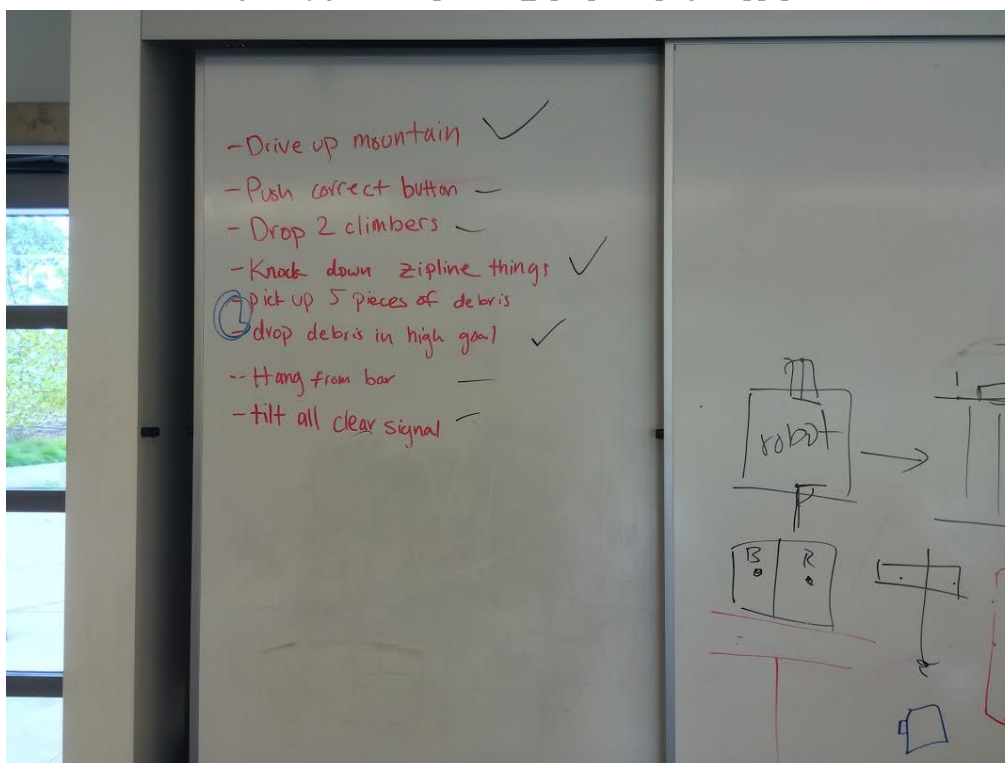 - Drive up mountain ✓
- Push correct button —
- Drop 2 climbers —
- Knock down zipline things ✓
- pick up 5 pieces of debris
- drop debris in high goal ✓
-- Hang from bar —
- tilt all clear signal —
robot
B R